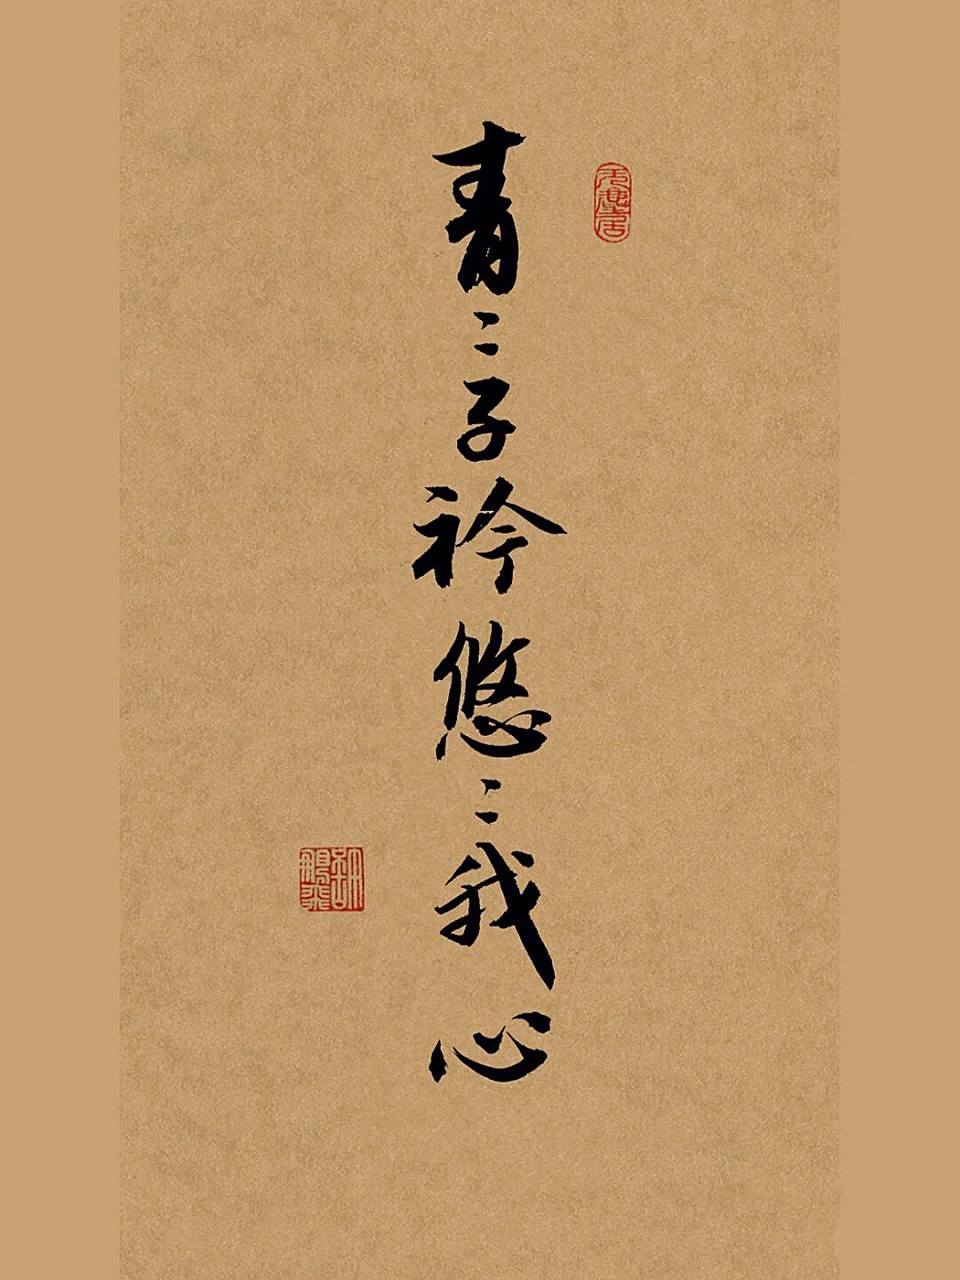 青〻子衿悠〻我心